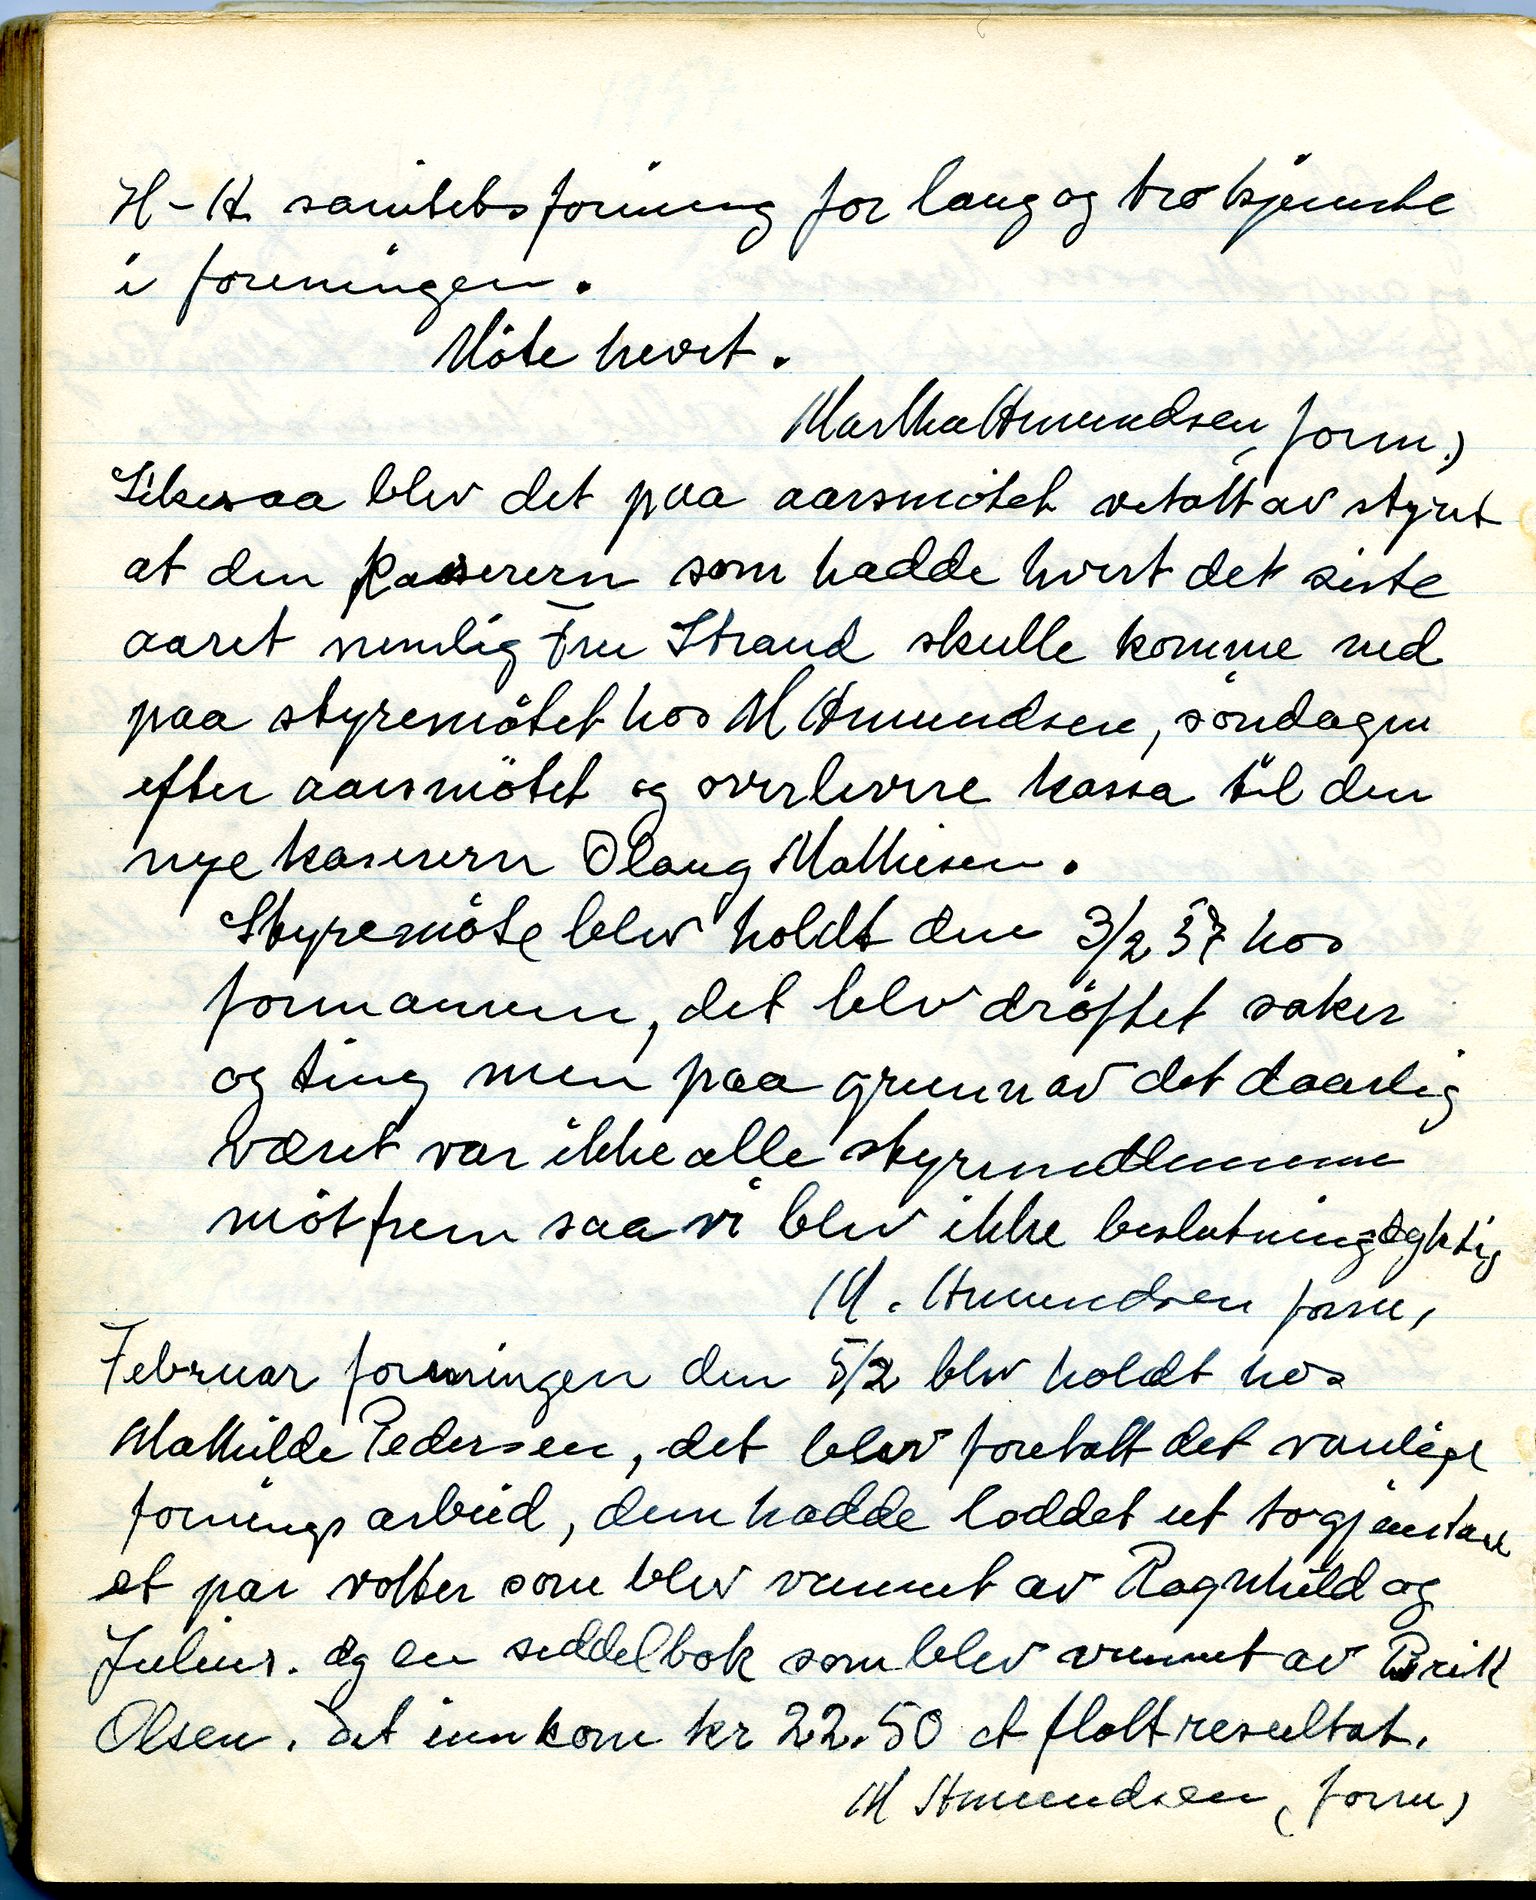 H-K. sanitetsforning for lang og tro tjeneste
i foreningen.
Möte hevet.
Martha Amundsen, form.)
Likesaa blev det paa aarsmötet vetatt av styret
at den kasserern som hadde hvert det siste
aaret nemlig Fru Strand skulle komme ned
paa styremötet hos M Amundsen, söndagen
efter aarsmötet og overlevere kassa til den
nye kasserern Olaug Mathiesen.
Styremöte blev holdt den 3/2 57 hos
formannen, det blev dröftet saker
og ting men paa grunn av det daarlig
været var ikke alle styremedlemmene
möt frem saa vi blev ikke beslutningsdyktig
M. Amundsen form,
Februar foreningen den 5/2 blev holdt hos
Mathilde Pedersen, det blev foretatt det vanlige
fornings arbeid, dem hadde loddet ut to gjenstan
et par votter som blev vunnet av Ragnhild og
Julius. og en seddelbok som blev vunnet av Brit
Olsen. det innkom kr 22.50 et flott resultat.
M Amundsen, form)